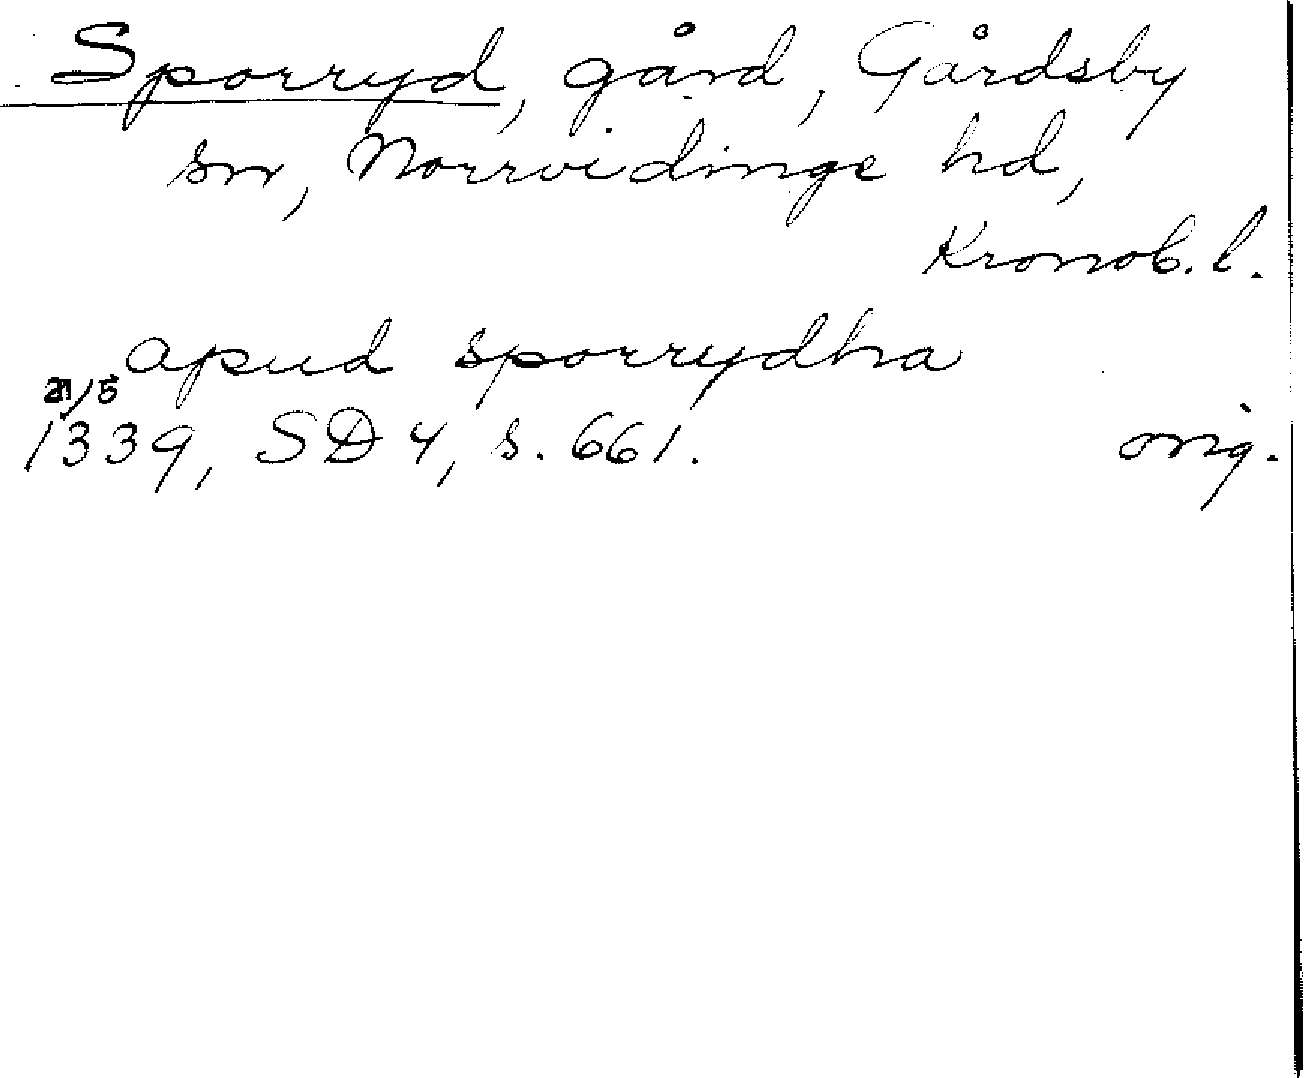 Sporryd, gård, Gårdsby
sn, Norrvidinge hd,
Kronob. l.
apud sporrydha
1339, SD 4, s. 661. orig.